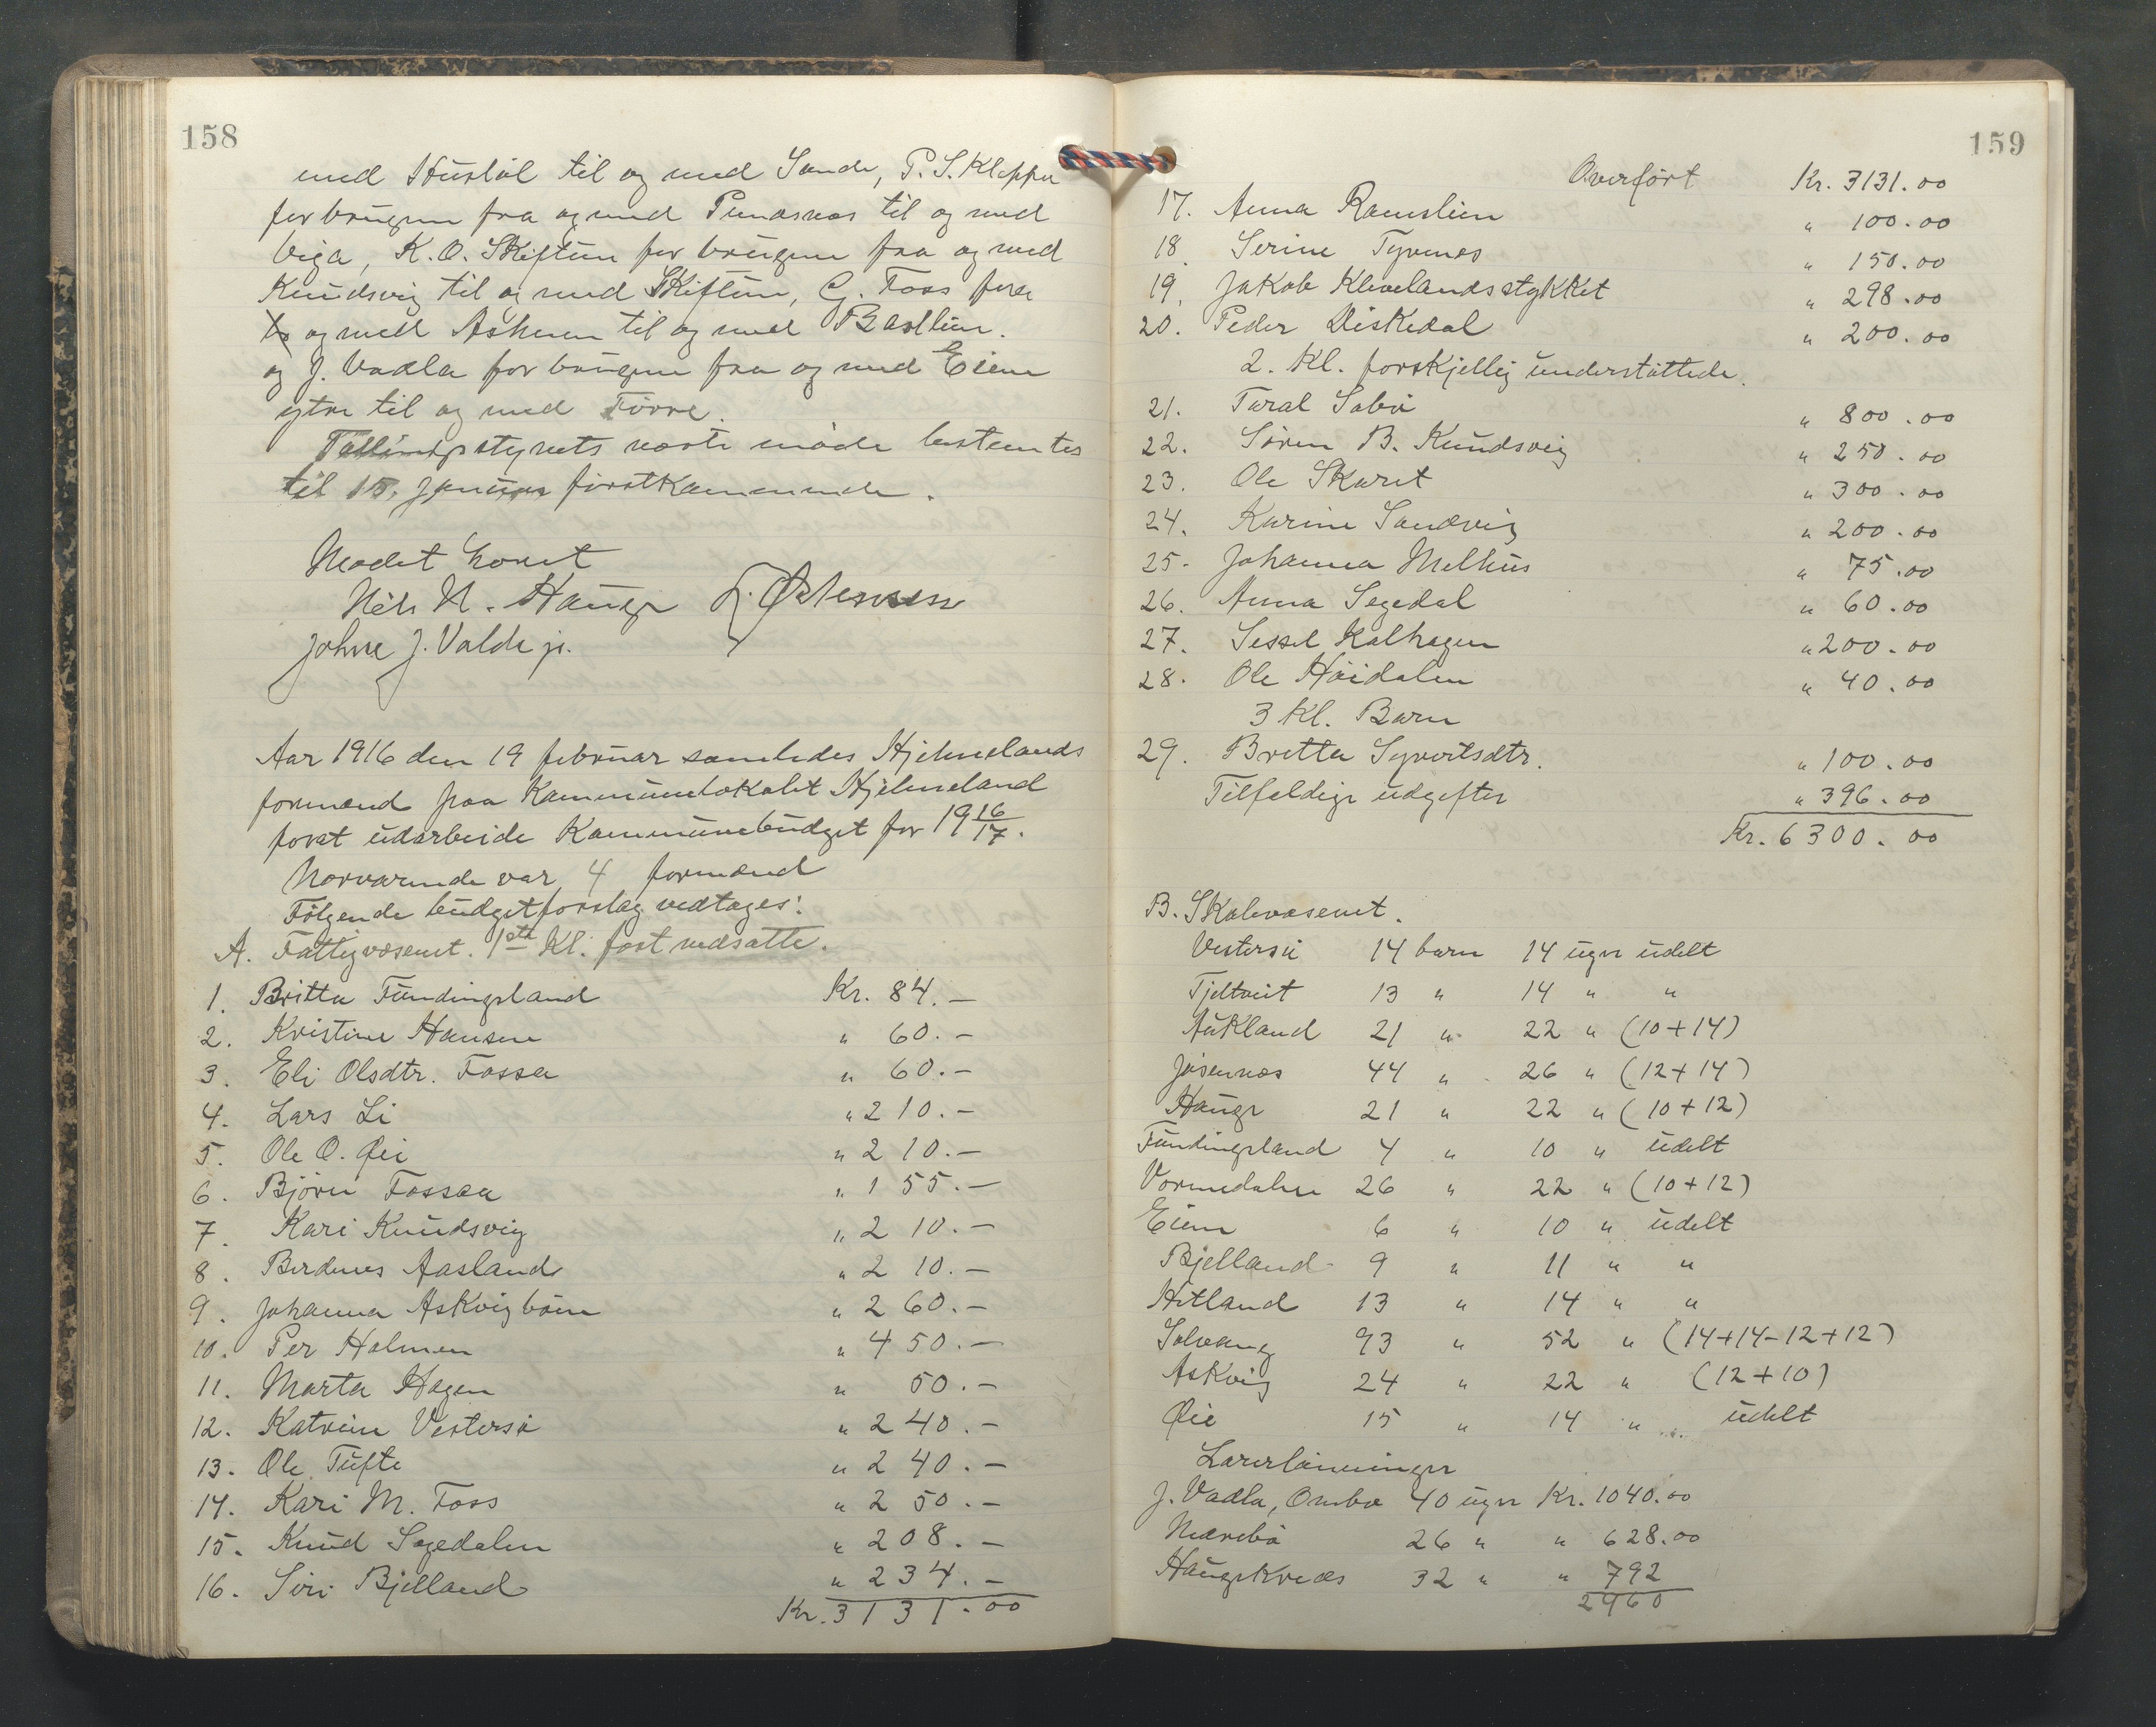 158
med Husstøl til og med Sande, P. S. Kleppa
for brugene fra og med Pundsnes til og med
Viga, K. O. Skiftun for brugene fra og med
Knudsvig til og med Skiftun, G. Foss fra
og med Askvik til og med Bastlien.
og J. Vadla for brugene fra og med Eiene
ytre til og med Tørre.
Tællingsstyrets næste møde bestemtes
til 15. januar førstkommende.
Mødet hævet
Nils N. Hauge L. Østensen
Johne J. Valde jr.
Aar 1916 den 19 februar samledes Hjelmelands
formænd paa Kommunelokalet Hjelmeland
forat udarbeide Kommunebudget for 19 16/17.
Nærværende var 4 formænd
Følgende budgetforslag vedtages:
A. Fattigvæsenet. 1ste Kl. fast nedsatte.
1. Britta Fundingsland Kr. 84.-
2. Kristine Hansen " 60.-
3. Eli Olsdtr. Fossa " 60.-
4. Lars Li " 210.-
5. Ole O. Øie " 210.-
6. Bjørn Fossaa " 155.-
7. Kari Knudsvig " 210.-
8. Berdines Aasland " 210.-
9. Johanna Askvigbøen " 260.-
10. Per Holmen " 450.-
11. Marta Hagen " 50.-
12. Katrine Vestersø " 240.-
13. Ole Tufte " 240.-
14. Kari M. Foss " 250.-
15. Knud Segedalen " 208.-
16. Siri Bjelland " 234.-
Kr. 3131.00
159
Overført Kr. 3131.00
17. Anna Ramslien " 100.00
18. Serine Tyvenes " 150.00
19. Jakob Klevelandsstykket " 298.00
20. Peder Diskedal " 200.00
2. Kl. forskjellig understøttede.
21. Taral Sabø " 800.00
22. Søren B. Knudsvig " 250.00
23. Ole Skaret " 300.00
24. Karine Sandvig " 200.00
25. Johanna Melhus " 75.00
26. Anna Segedal " 60.00
27. Sessel Kalhagen " 200.00
28. Ole Høidalen " 40.00
3 Kl. Barn
29. Britta Syvertsdtr. " 100.00
Tilfeldige udgifter " 396.00
Kr. 6300.00
B. Skolevæsenet.
Vestersø 14 barn 14 uger udelt
Tjeltveit 13 " 14 " "
Aukland 21 " 22 " (10+14)
Jøsennes 44 " 26 " (12+14)
Hauge 21 " 22 " (10+12)
Fundingsland 4 " 10 " udelt
Vormedalen 26 " 22 " (10+12)
Eiene 6 " 10 " udelt
Bjelland 9 " 11 " "
Hetland 13 " 14 " "
Solvang 93 " 52 " (14+14-12+12)
Askvig 24 " 22 " (12+10)
Øie 15 " 14 " udelt
Lærerlønninger
J. Vadla, Ombo 40 uger Kr. 1040.00
Nærebø 26 " " 628.00
Haugekreds 32 " " 792
2460